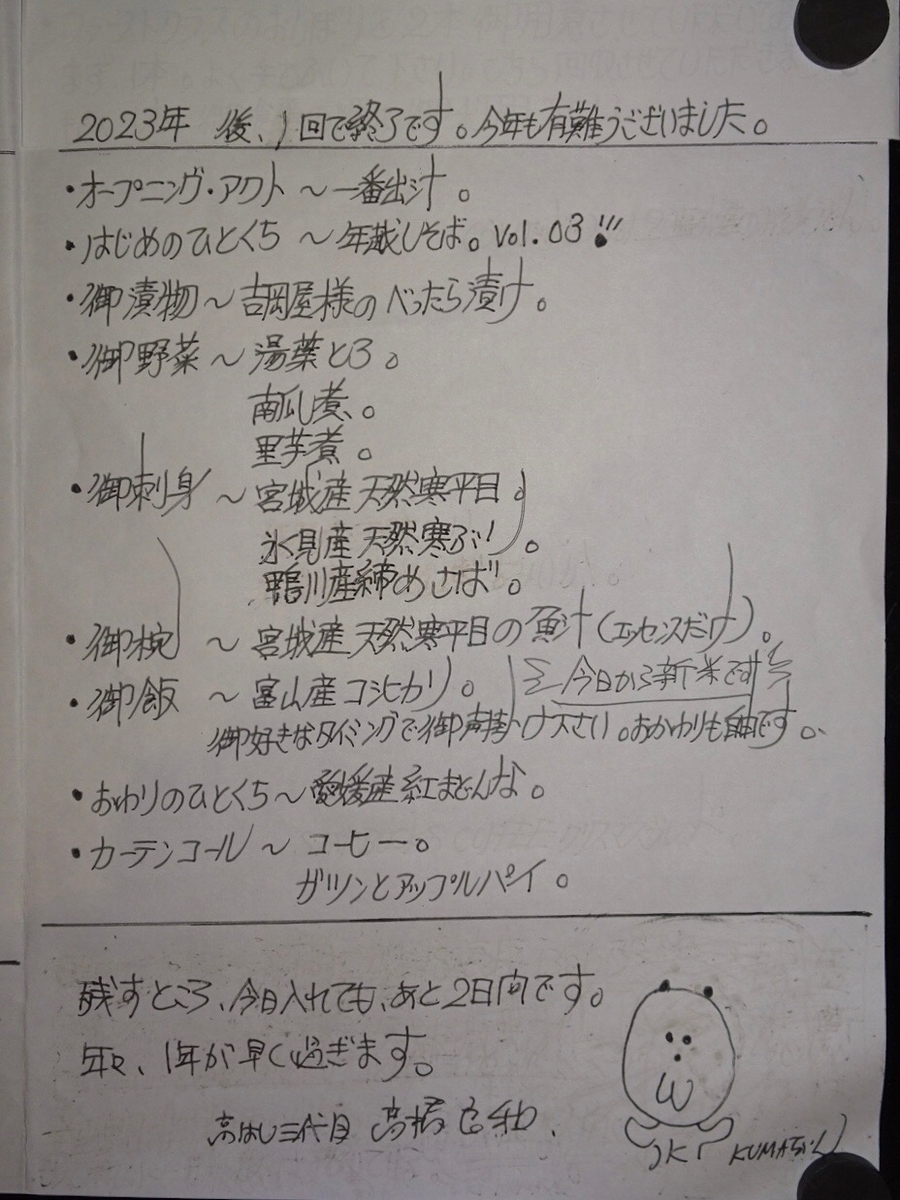 2023年 後、1回で終了です。今年も有難うございました。
・オープニング・アクト ～ 一番出汁。
・はじめのひとくち ～ 年越しそば。Vol.03!!!
・御漬物 ～ 吉岡屋様のべったら漬け。
・御野菜 ～ 湯葉とろ。
南瓜煮。
里芋煮。
・御刺身 ～ 宮城産天然寒平目。
氷見産天然寒ぶり。
鴨川産締めさば。
・御椀 ～ 宮城産天然寒平目の魚汁(エッセンスだけ)。
・御飯 ～ 富山産コシヒカリ。 今日から新米です
御好きなタイミングで御声掛け下さい。おかわりも自由です。
・おわりのひとくち ～ 愛媛産紅まどんな。
・カーテンコール ～ コーヒー。
ガツンとアップルパイ。
残すところ、今日入れても、あと2日間です。
年々、1年が早く過ぎます。
高はし三代目 高橋
KUMAちゃん